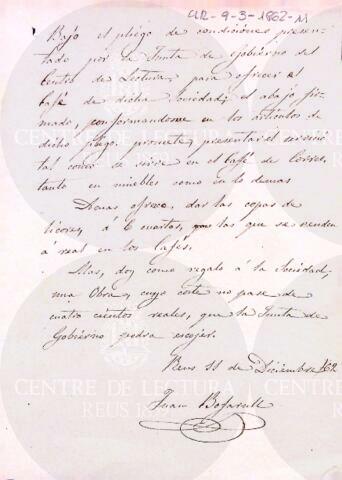 CLR-9-3-1862-11
Bajo el pliego de condiciones presen-
tado por la Junta de Gobierno del
Centro de Lectura, para ofrecer el
café de dicha Sociedad; el abajo fir-
mado, conformandome en los artículos de
dicho pliego, promete, presentar el servicio
tal como se sirve en el café de
tanto en muebles como en lo demas
Demas ofrece, dar las copas de
licores, á 6 cuartos, que las que se venden
á real en los cafés.
Mas, doy como regalo á la Sociedad,
una Obra, cuyo coste no pase de
cuatro cientos reales, que la Junta de
Gobierno podra escojer.
Reus 11 de Diciembre 62
Juan Bofarull
CENTRE DE LECTURA
REUS 1859